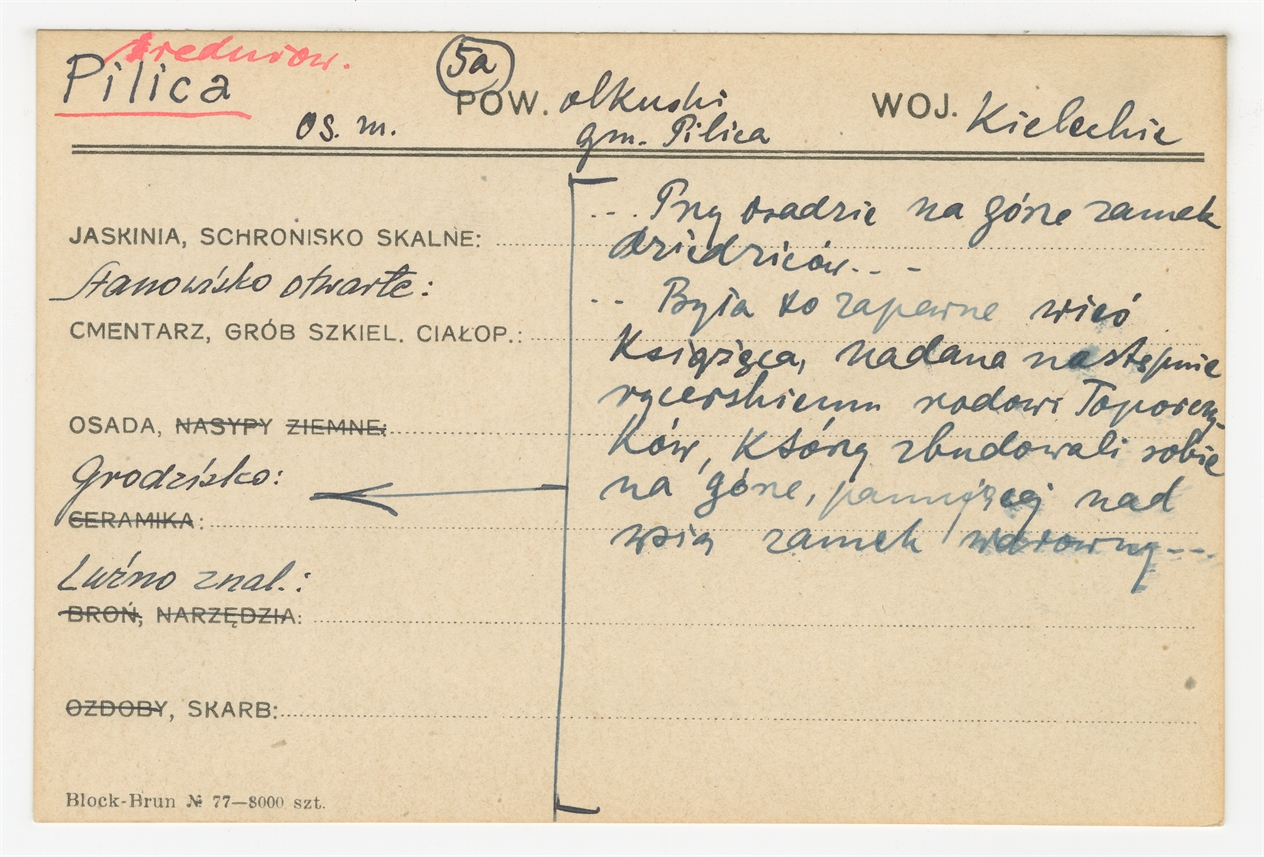 średniow.
Pilica
5a
os. m.
POW. olkuski
gm. Pilica
WOJ. Kieleckie
JASKINIA, SCHRONISKO SKALNE:
Stanowisko otwarte:
CMENTARZ, GRÓB SZKIEL. CIAŁOP.:
OSADA, NASYPY ZIEMNE:
Grodzisko:
CERAMIKA:
Luźno znal.:
BROŃ, NARZĘDZIA:
OZDOBY, SKARB:
Block-Brun № 77—8000 szt.
... Przy osadzie na górze zamek
dziedziców...
.. Była to zapewne wieś
Książęca, nadana następnie
rycerskiemu rodowi Toporczy-
ków, którzy zbudowali sobie
na górze, panującej nad
wsią zamek warowny...